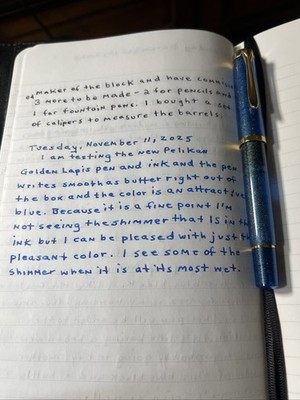 ed maker of the block and have commission
3 more to be made - 2 for pencils and
1 for fountain pens. I bought a set
of calipers to measure the barrels.
Tuesday, November 11, 2025
I am testing the new Pelikan
Golden Lapis pen and ink and the pen
writes smooth as butter right out of
the box and the color is an attractive
blue. Because it is a fine point I'm
not seeing the shimmer that is in the
ink but I can be pleased with just the
pleasant color. I see some of the
shimmer when it is at its most wet.